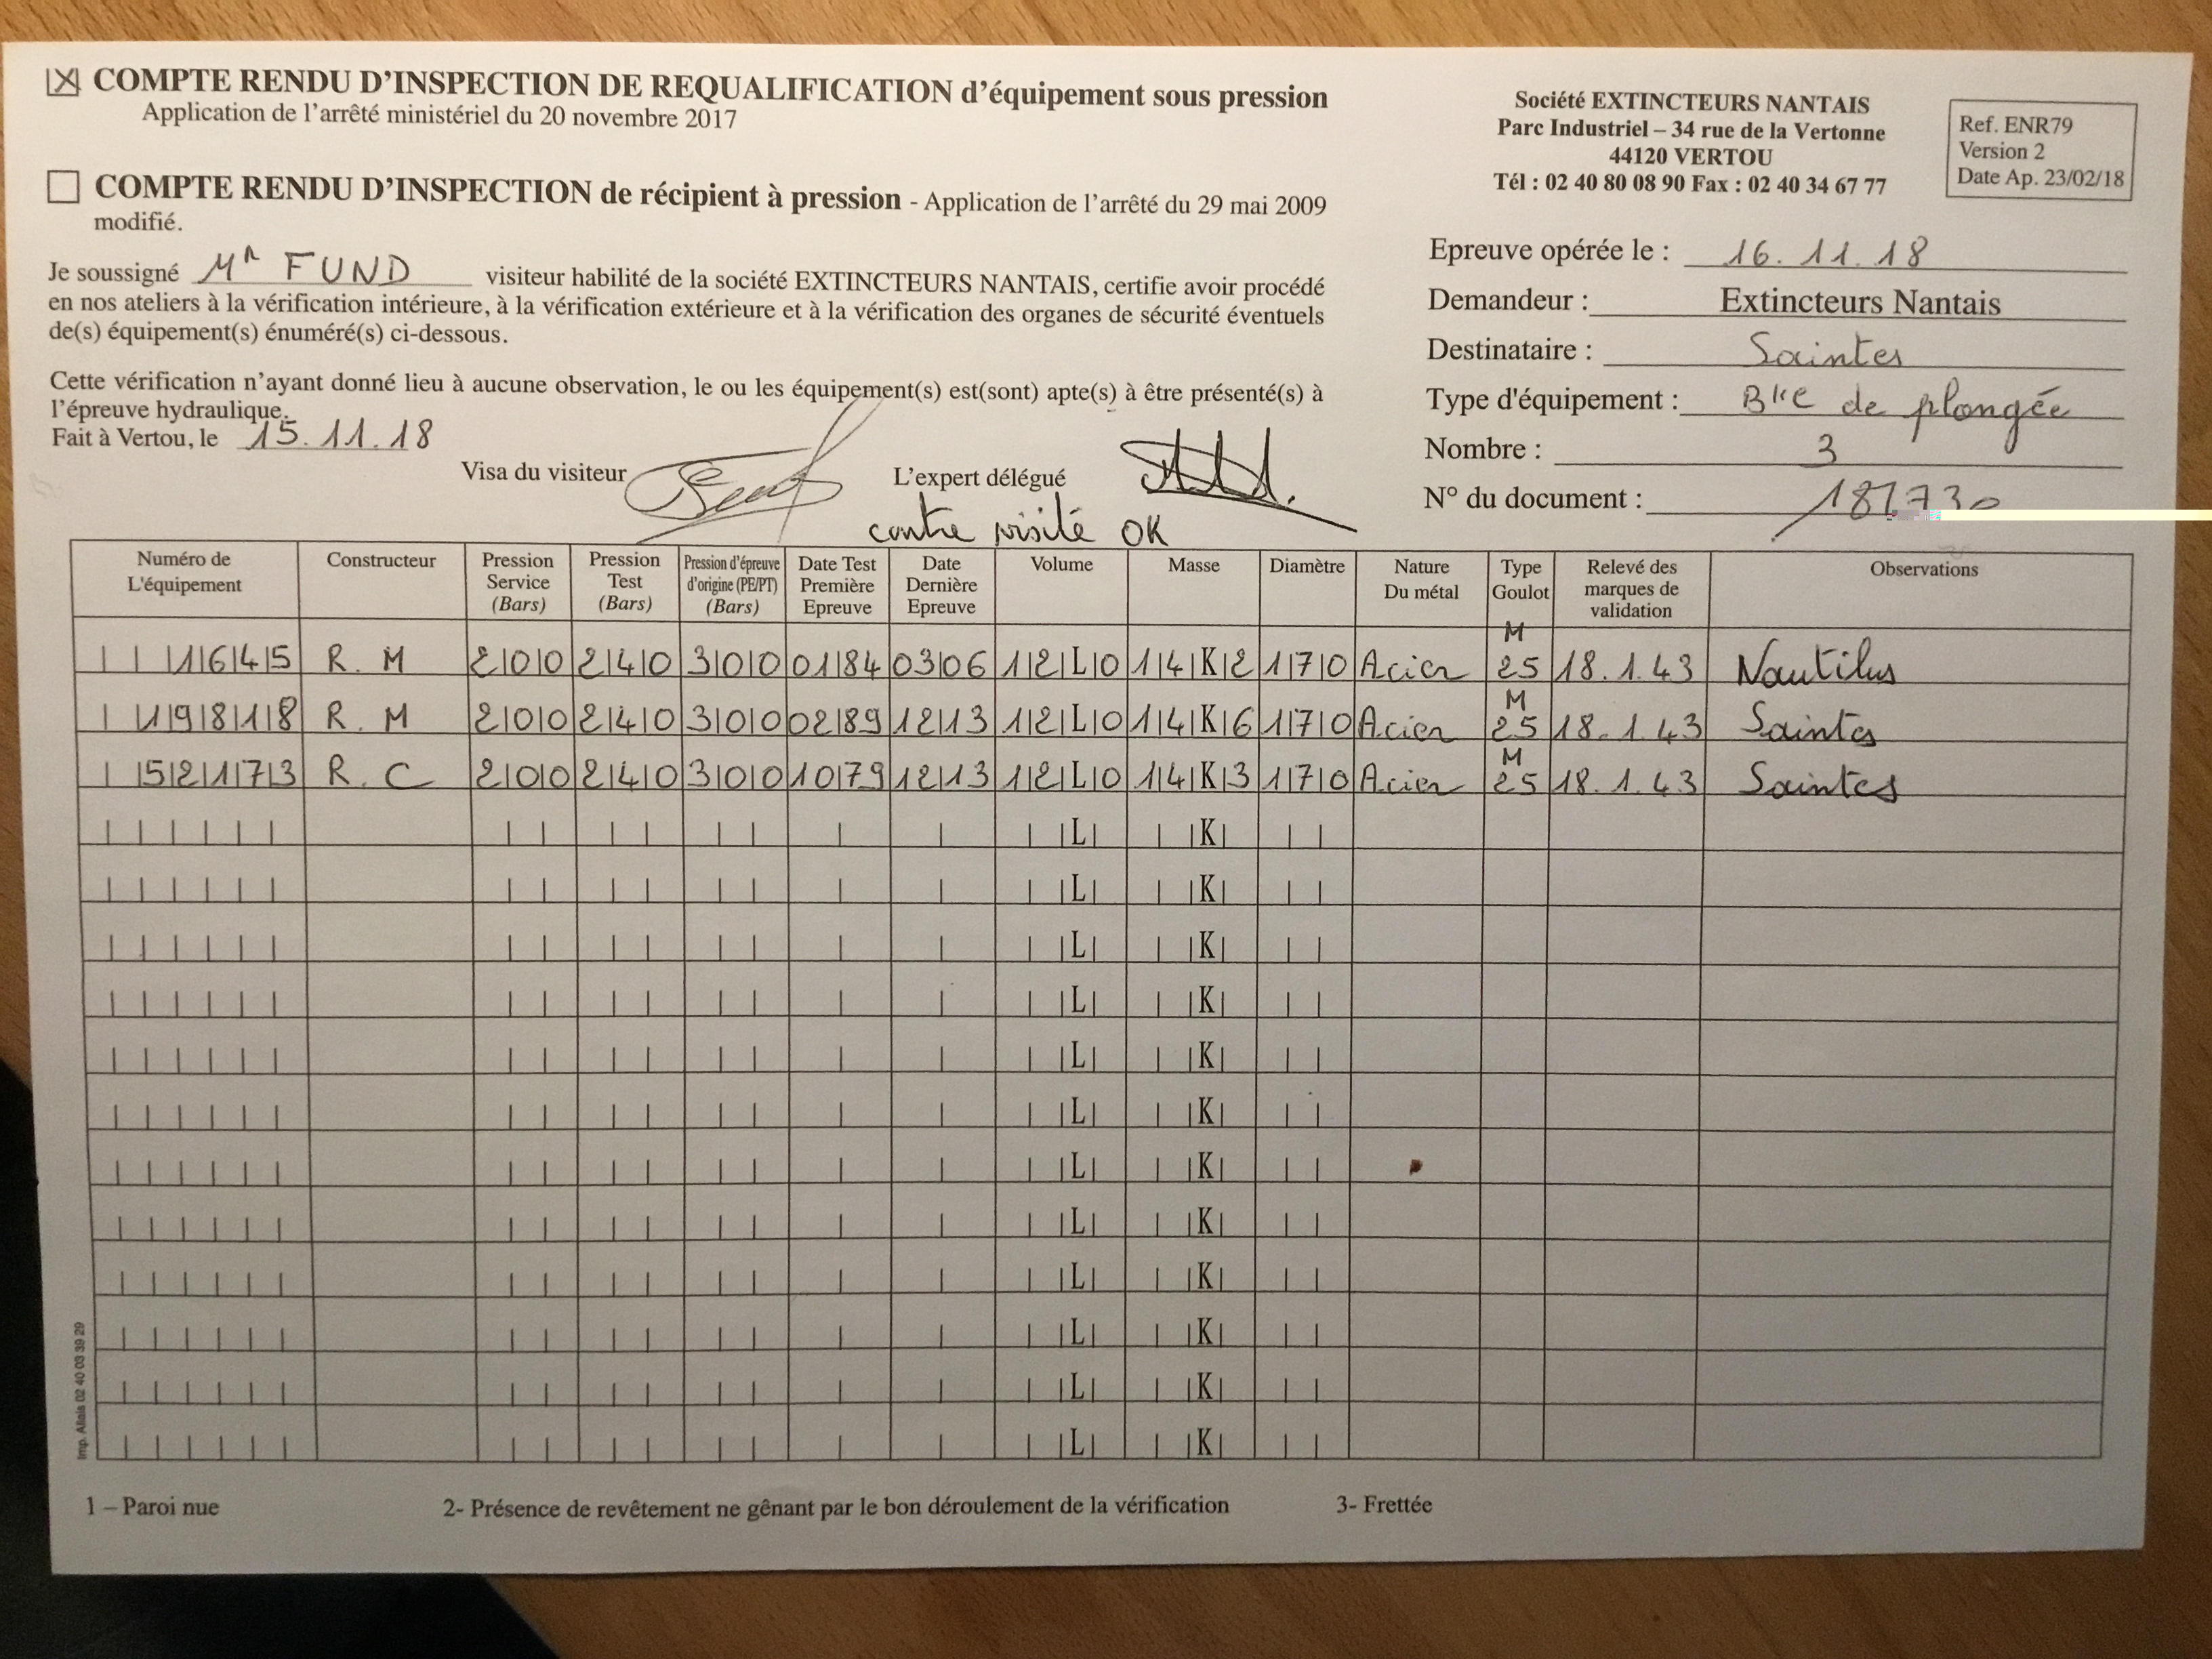 COMPTE RENDU D'INSPECTION DE REQUALIFICATION d'équipement sous pression
Application de l'arrêté ministériel du 20 novembre 2017
COMPTE RENDU D'INSPECTION de récipient à pression - Application de l'arrêté du 29 mai 2009
modifié.
Je soussigné Mr FUND visiteur habilité de la société EXTINCTEURS NANTAIS, certifie avoir procédé
en nos ateliers à la vérification intérieure, à la vérification extérieure et à la vérification des organes de sécurité éventuels
de(s) équipement(s) énuméré(s) ci-dessous.
Cette vérification n'ayant donné lieu à aucune observation, le ou les équipement(s) est(sont) apte(s) à être présenté(s) à
l'épreuve hydraulique.
Fait à Vertou, le 15.11.18
Visa du visiteur L'expert délégué
contre visité OK
Société EXTINCTEURS NANTAIS
Parc Industriel – 34 rue de la Vertonne
44120 VERTOU
Tél : 02 40 80 08 90 Fax : 02 40 34 67 77
Ref. ENR79
Version 2
Date Ap. 23/02/18
Epreuve opérée le : 16.11.18
Demandeur : Extincteurs Nantais
Destinataire : Saintes
Type d'équipement : Blle de plongée
Nombre : 3
N° du document :
Numéro de L'équipement Constructeur Pression Service (Bars) Pression Test (Bars) Pression d'épreuve d'origine (PE/PT) (Bars) Date Test Première Epreuve Date Dernière Epreuve Volume Masse Diamètre Nature Du métal Type Goulot Relevé des marques de validation Observations
1645 R. M 200 240 300 01 84 03 06 12 L 0 14 K 2 170 Acier M 25 18.1.43 Nautilus
19818 R. M 200 240 300 02 89 12 13 12 L 0 14 K 6 170 Acier M 25 18.1.43 Saintes
52173 R. C 200 240 300 10 79 12 13 12 L 0 14 K 3 170 Acier M 25 18.1.43 Saintes
L K
L K
L K
L K
L K
L K
L K
L K
L K
L K
L K
L K
Imp. Allais 02 40 03 39 29
1 – Paroi nue 2- Présence de revêtement ne gênant par le bon déroulement de la vérification 3- Frettée